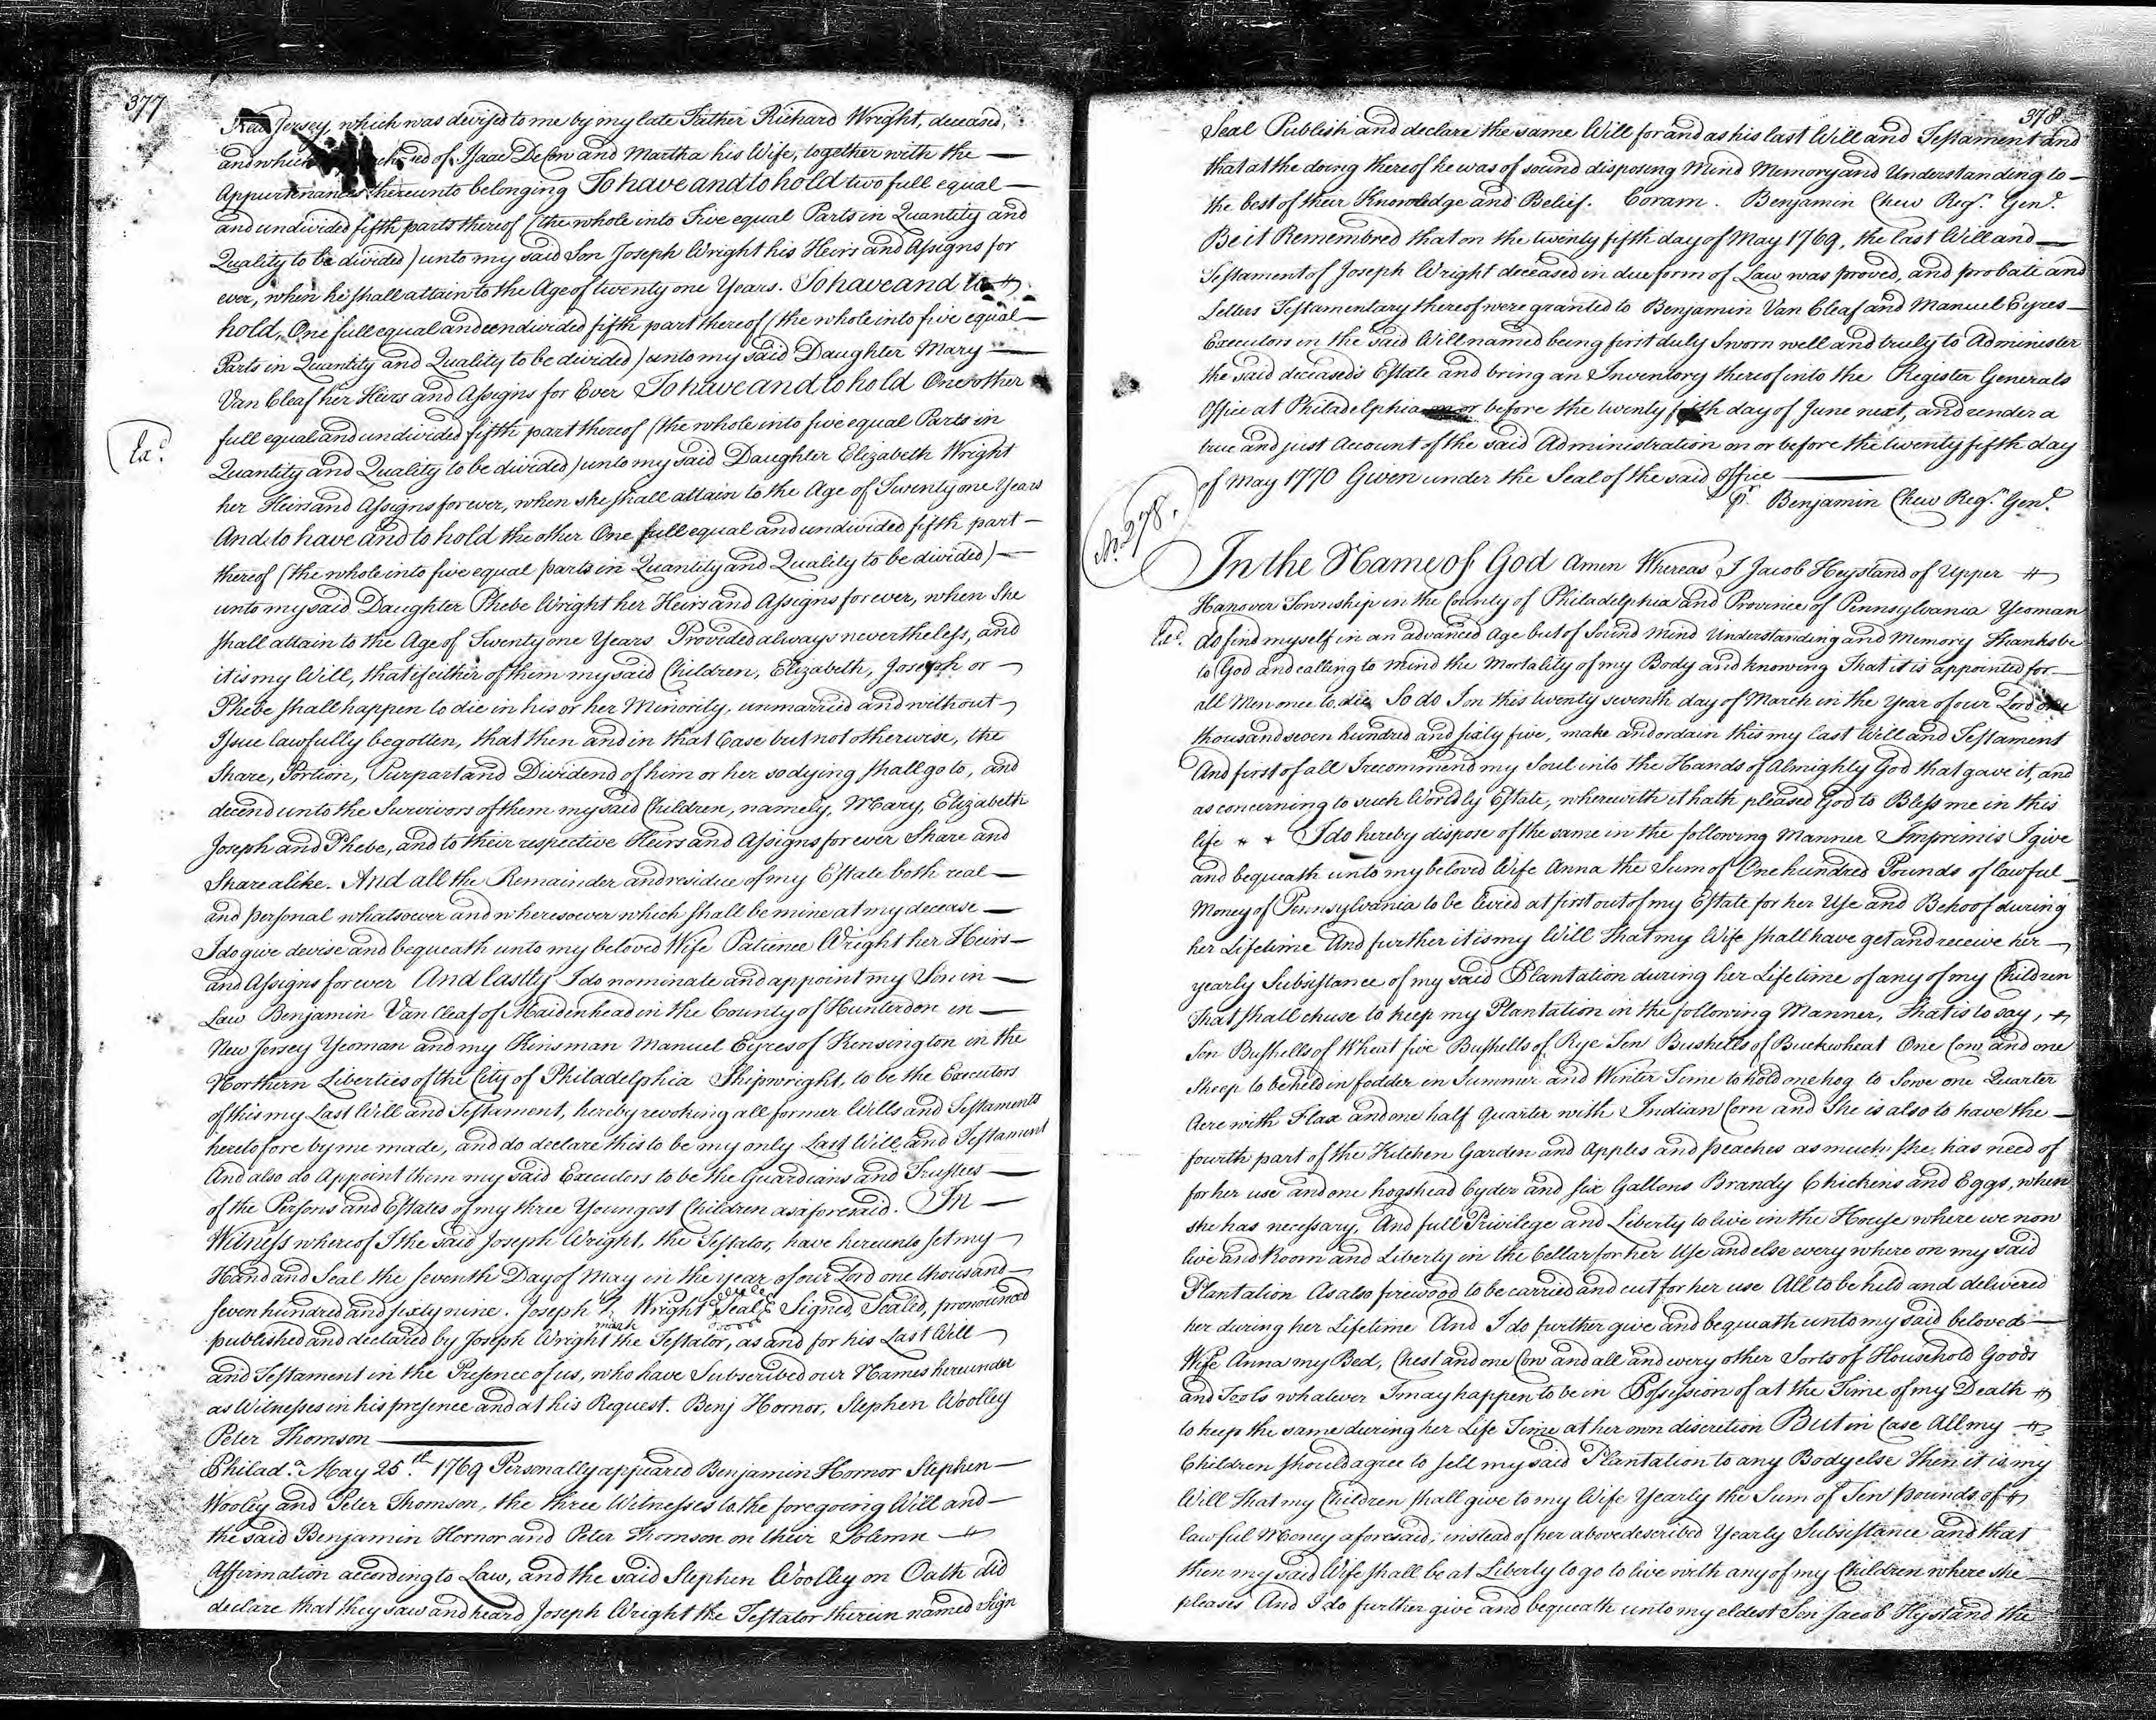 377
New Jersey, which was devised to me by my late Father Richard Wright, deceased,
and which of Isaac Decow and Martha his Wife, together with the
Appurtenances thereunto belonging To have and to hold two full equal
and undivided fifth parts thereof (the whole into Five equal Parts in Quantity and
Quality to be divided) unto my said Son Joseph Wright his Heirs and Assigns for
ever, when he shall attain to the Age of twenty one Years. To have and to
hold, One full equal and undivided fifth part thereof (the whole into five equal
Parts in Quantity and Quality to be divided) unto my said Daughter Mary
Van Cleaf her Heirs and Assigns for Ever To have and to hold One other
full equal and undivided fifth part thereof (the whole into five equal Parts in
Exd.
Quantity and Quality to be divided) unto my said Daughter Elizabeth Wright
her Heirs and Assigns forever, when she shall attain to the Age of Twenty one Years
And to have and to hold the other One full equal and undivided fifth part
thereof (the whole into five equal parts in Quantity and Quality to be divided)
unto my said Daughter Phebe Wright her Heirs and Assigns forever, when She
shall attain to the Age of Twenty one Years Provided always nevertheless, and
it is my Will, that if either of them my said Children, Elizabeth, Joseph or
Phebe shall happen to die in his or her Minority, unmarried and without
Issue lawfully begotten, that then and in that Case but not otherwise, the
Share, Portion, Purpart and Dividend of him or her so dying shall go to, and
decend unto the Survivors of them my said Children, namely, Mary, Elizabeth
Joseph and Phebe, and to their respective Heirs and Assigns for ever Share and
Share alike. And all the Remainder and residue of my Estate both real
and personal whatsoever and wheresoever which shall be mine at my decease
I do give devise and bequeath unto my beloved Wife Patience Wright her Heirs
and Assigns for ever And lastly I do nominate and appoint my Son in
Law Benjamin Van Cleaf of Maidenhead in the County of Hunterdon in
New Jersey Yeoman and my Kinsman Manuel Eyres of Kensington in the
Northern Liberties of the City of Philadelphia Shipwright, to be the Executors
of this my Last Will and Testament, hereby revoking all former Wills and Testaments
heretofore by me made, and do declare this to be my only Last Will and Testament
And also do Appoint them my said Executors to be the Guardians and Trustees
of the Persons and Estates of my three Youngest Children as aforesaid. In
Witness whereof I the said Joseph Wright, the Testator, have hereunto set my
Hand and Seal the seventh Day of May in the year of our Lord one thousand
seven hundred and sixty nine. Joseph Wright Seal Signed, Sealed, pronounced
mark
published and declared by Joseph Wright the Testator, as and for his Last Will
and Testament in the Presence of us, who have Subscribed our Names hereunder
as Witnesses in his presence and at his Request. Benj Hornor, Stephen Woolley
Peter Thomson
Philada. May 25th. 1769 Personally appeared Benjamin Hornor Stephen
Wooley and Peter Thomson, the three Witnesses to the foregoing Will and
the said Benjamin Hornor and Peter Thomson on their Solemn
Affirmation according to Law, and the said Stephen Woolley on Oath did
declare that they saw and heard Joseph Wright the Testator therein named Sign
378
Seal Publish and declare the same Will for and as his last Will and Testament and
that at the doing thereof he was of sound disposing Mind Memory and Understanding to
the best of their Knowledge and Belief. Coram. Benjamin Chew Regr. Genl.
Be it Remembred that on the twenty fifth day of May 1769, the last Will and
Testament of Joseph Wright deceased in due form of Law was proved, and probate and
Letters Testamentary thereof were granted to Benjamin Van Cleaf and Manuel Eyres
Executors in the said Will named being first duly Sworn well and truly to Administer
the said deceased's Estate and bring an Inventory thereof into the Register Generals
Office at Philadelphia on or before the twenty fifth day of June next, and render a
true and just Account of the said Administration on or before the twenty fifth day
of May 1770 Given under the Seal of the said Office
Pr. Benjamin Chew Regr. Genl.
No. 278.
In the Name of God Amen Whereas I Jacob Heystand of Upper
Hanover Township in the County of Philadelphia and Province of Pennsylvania Yeoman
Exd. do find myself in an advanced Age but of Sound Mind Understanding and Memory Thanks be
to God and calling to mind the Mortality of my Body and knowing That it is appointed for
all Men once to die So do I on this twenty seventh day of March in the Year of our Lord one
thousand seven hundred and sixty five, make and ordain this my last Will and Testament
And first of all I recommend my Soul into the Hands of Almighty God that gave it, and
as concerning to such Worldly Estate, wherewith it hath pleased God to Bless me in this
life I do hereby dispose of the same in the following Manner Imprimis I give
and bequeath unto my beloved Wife Anna the Sum of One hundred Pounds of lawful
Money of Pennsylvania to be levied at first out of my Estate for her Use and Behoof during
her Lifetime And further it is my Will That my Wife shall have get and receive her
yearly Subsistance of my said Plantation during her Lifetime of any of my Children
That shall chuse to keep my Plantation in the following Manner, That is to say,
Ten Bushells of Wheat five Bushells of Rye Ten Bushells of Buckwheat One Cow and one
Sheep to be held in fodder in Summer and Winter Time to hold one hog to Sowe one Quarter
Acre with Flax and one half Quarter with Indian Corn and She is also to have the
fourth part of the Kitchen Garden and Apples and peaches as much she has need of
for her use and one hogshead Cyder and six Gallons Brandy Chickens and Eggs, when
she has necessary, And full Privilege and Liberty to live in the House where we now
live and Room and Liberty in the Cellar for her Use and else every where on my said
Plantation As also firewood to be carried and cut for her use All to be held and delivered
her during her Lifetime And I do further give and bequeath unto my said beloved
Wife Anna my Bed, Chest and one Cow and all and every other Sorts of Household Goods
and Tools whatever I may happen to be in Possession of at the Time of my Death
to keep the same during her Life Time at her own discretion But in Case All my
Children should agree to sell my said Plantation to any Body else Then it is my
Will That my Children shall give to my Wife Yearly the Sum of Ten pounds of
lawful Money aforesaid, instead of her abovedescribed Yearly Subsistance and that
then my said Wife shall be at Liberty to go to live with any of my Children where she
pleases And I do further give and bequeath unto my eldest Son Jacob Hystand the